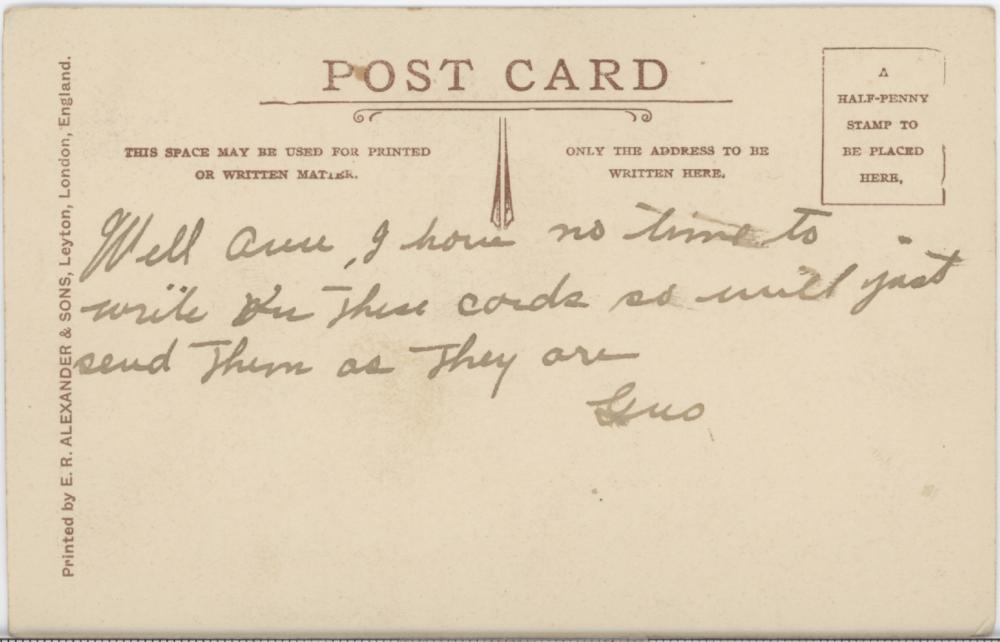 POST CARD
THIS SPACE MAY BE USED FOR PRINTED
OR WRITTEN MATTER.
ONLY THE ADDRESS TO BE
WRITTEN HERE.
A
HALF-PENNY
STAMP TO
BE PLACED
HERE.
Well Anne, I have no time to
write on these cards so will just
send them as they are
Gus
Printed by E. R. ALEXANDER & SONS, Leyton, London, England.